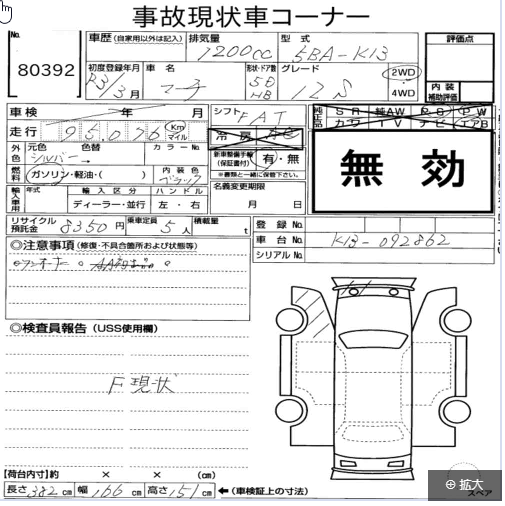 事故現状車コーナー
No.
80392
車歴(自家用以外は記入)
排気量
1200cc
型式
5BA-K13
評価点
初度登録年月
R3/3月
車名
マーチ
形状・ドア数
5D
HB
グレード
12S
2WD
4WD
内装
補助評価
車検 年 月
シフト FAT
純正品
SR 純AW PS PW
カワ TV ナビ エアB
走行 95,076 Km マイル
冷房 AC
無効
外色
元色 シルバー →
色替
カラーNo.
新車整備手帳
(保証書付)
有・無
※書類と一緒に保管下さい。
燃料
ガソリン・軽油・( )
内装色
ブラック
名義変更期限
月 日
輸入車用
年式
輸入区分
ディーラー・並行
ハンドル
左・右
リサイクル預託金
8350円
乗車定員
5人
積載量
t
登録No.
車台No.
K13-092862
シリアルNo.
◎注意事項(修復・不具合箇所および状態等)
ワンオーナー。
◎検査員報告(USS使用欄)
F現状
【荷台内寸】約 × × (cm)
長さ 382cm 幅 166cm 高さ 151cm ←(車検証上の寸法)
スペア
拡大